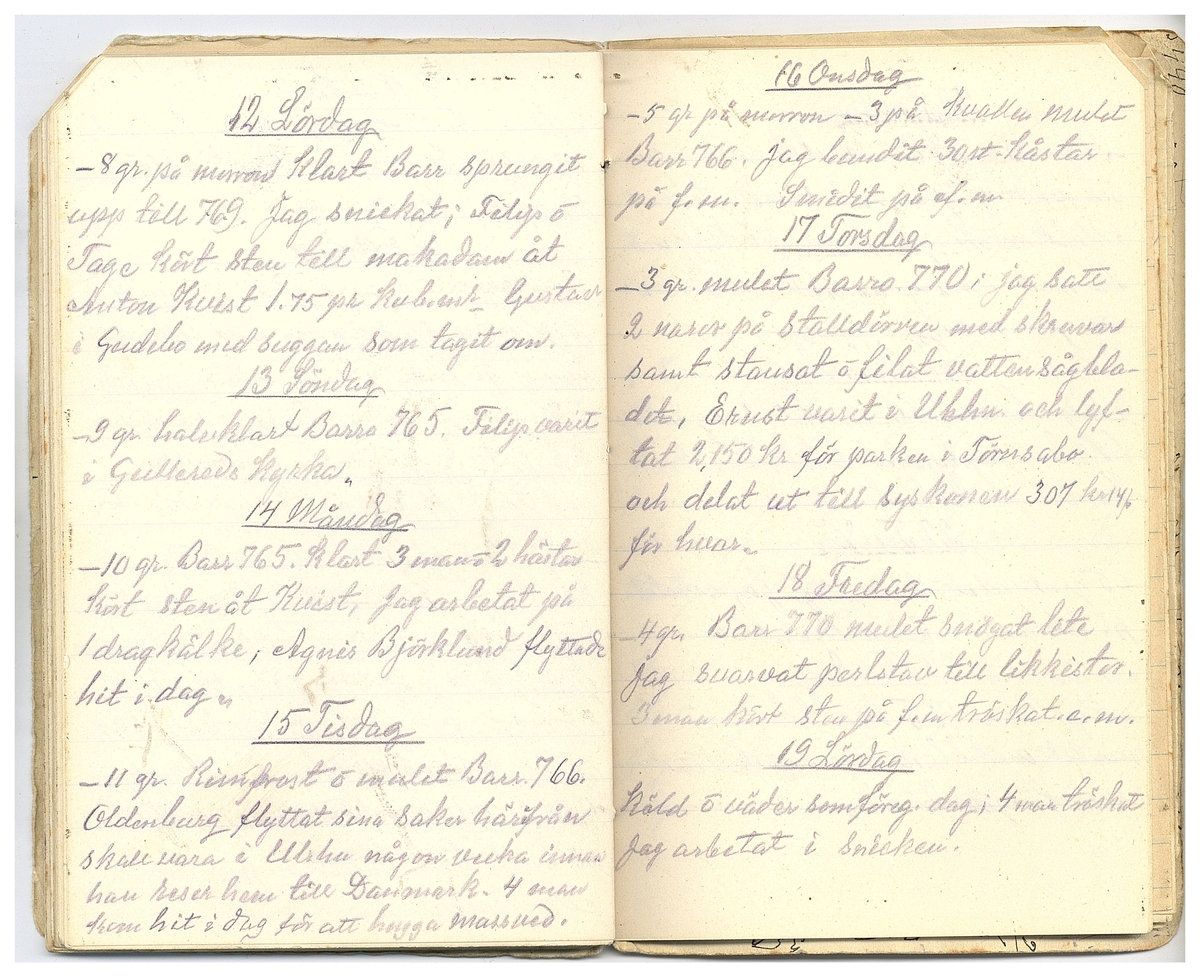 12 Lördag
-8 gr. på morron Klart Barr sprungit
upp till 769. Jag snickat; Filip o
Tage kört sten till makadam åt
Anton Kvist 1.75 pr kub.mr Gustav
i Gudebo med suggan som tagit om.
13 Söndag
-9 gr halvklart Barro 765. Filip varit
i Gullereds Kyrka„
14 Måndag
-10 gr. Barr 765. Klart 3 man o 2 hästar
kört sten åt Kvist, Jag arbetat på
1 dragkälke; Agnis Björklund flyttade
hit i dag„
15 Tisdag
-11 gr. Rimfrost o mulet Barr. 766.
Oldenburg flyttat sina saker härifrån
skall vara i Ulrhn någon vecka innan
han reser hem till Danmark. 4 man
kom hit i dag för att hugga massved.
16 Onsdag
-5 gr på morron -3 på kvällen mulet
Barr 766. Jag bundit 30 st. Kåstar
på f.m. Smidit på ef.m
17 Torsdag
-3 gr. mulet Barro. 770; jag satt
2 naror på stalldörren med skruvar
samt stansat o filat vattensågbla-
det, Ernst varit i Ulrhn och lyf-
tat 2,150 kr för parken i Törnsabo
och delat ut till syskonen 307 kr
för hvar.
18 Fredag
-4 gr. Barr 770 mulet snögat lite
Jag svarvat perlstav till likkistor.
3 man kört sten på f.m tröskat e.m.
19 Lördag
Köld o väder som föreg. dag; 4 man tröskat
Jag arbetat i snicken.